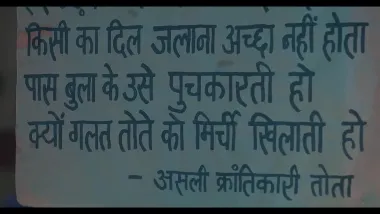 किसी का दिल जलाना अच्छा नहीं होता
पास बुला के उसे पुचकारती हो
क्यों गलत तोते को मिर्ची खिलाती हो
- असली क्रांतिकारी तोता